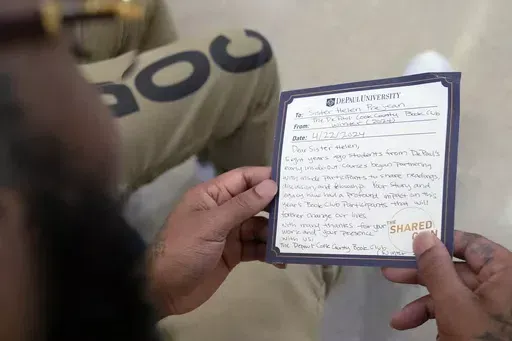 DOC
DEPAUL UNIVERSITY
To: Sister Helen Prejean
From: The DePaul Cook County Book Club
Winter (2024)
Date: 4/22/2024
Dear Sister Helen,
Eight years ago students from DePaul's
many inside-out courses began partnering
with inside participants to share readings,
discussion and fellowship. Your story and
legacy have had a profound impact on this
years Book Club Participants that will
forever change our lives.
With many thanks for your
work and your "presence"
with us!
The DePaul Cook County Book Club
THE SHARED